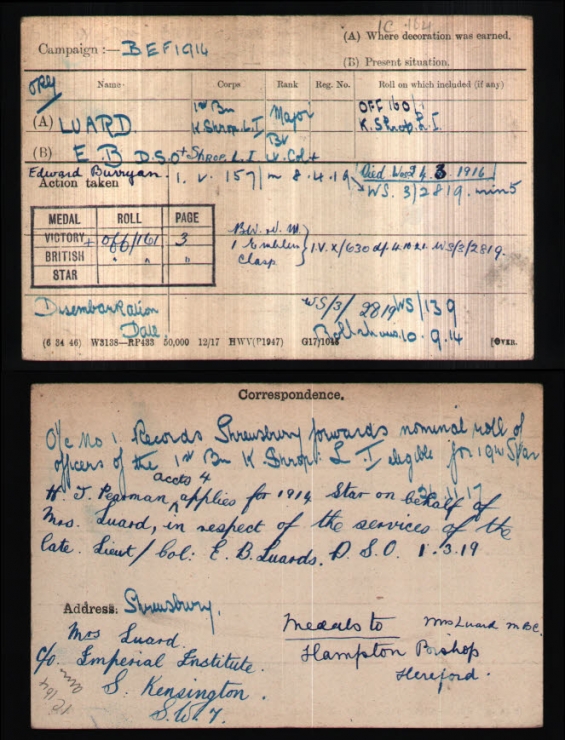 1C 164
Campaign :— BEF1914
(A) Where decoration was earned.
(B) Present situation.
Name Corps Rank Reg. No. Roll on which included (if any)
(A) LUARD 1st Bn K. Shrop. L. I Major OFF 160/1 K. Shrop. L. I.
(B) E. B D.S.O + Shrop. L. I Bt Lt. Col +
Edward Burryan. 1. V. 157/ m 8.4.19 Died 3. 1916
Action taken WS. 3/2819.
MEDAL ROLL PAGE
VICTORY + Off/161 3
BRITISH " " "
STAR
Emblem
Clasp
I.V. X/630 df 4.10.21. WS/3/2819.
Disembarkation Date.
WS/3/ 2819 WS/139
10. 9. 14
(6 34 46) W3138—RP433 50,000 12/17 HWV(P1947) G17/1046 [OVER.
Correspondence.
O/c No 1. Records Shrewsbury forwards nominal roll of
officers of the 1st Bn K. Shrop. L. I eligible for 1914 Star
26.11.17
accts 4
H. J. Pearman applies for 1914 Star on behalf of
Mrs. Luard, in respect of the services of the
late. Lieut/Col: E. B. Luards. D. S. O. 1.3.19
Address: Shrewsbury.
Mrs Luard.
C/o. Imperial Institute.
S. Kensington.
S.W.7.
Medals to Mrs Luard M.B.E.
Hampton Bishop
Hereford.